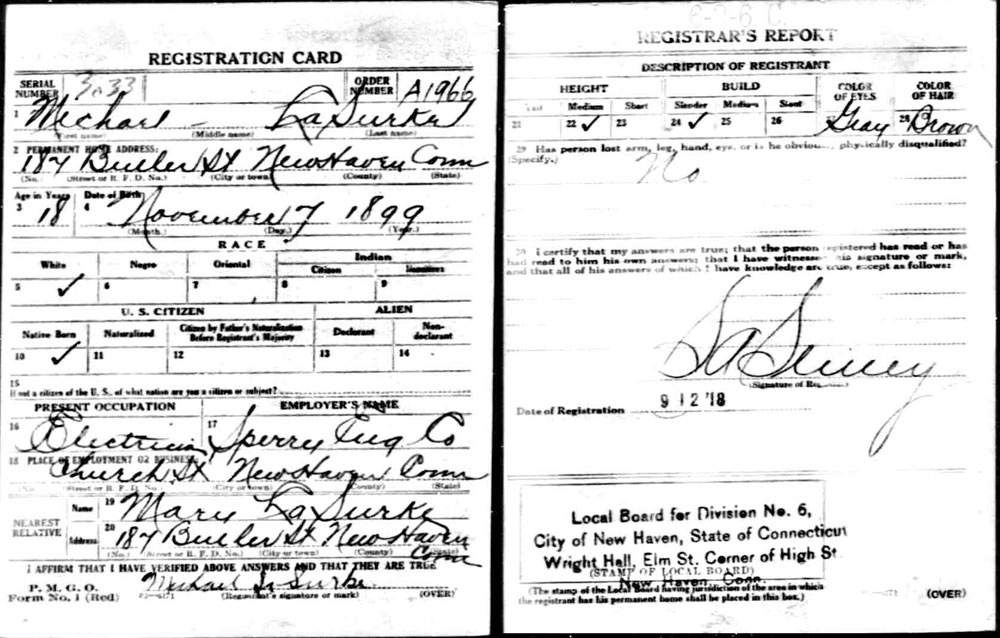 REGISTRATION CARD
SERIAL NUMBER ORDER NUMBER A1966
1 Michael - LaSurke
(First name) (Middle name) (Last name)
2 PERMANENT HOME ADDRESS:
187 Butler St New Haven Conn
(No.) (Street or R. F. D. No.) (City or town) (County) (State)
Age in Years Date of Birth
3 18 4 November 7 1899
(Month.) (Day.) (Year.)
RACE
White Negro Oriental Indian
Citizen
5 ✓ 6 7 8 9
U. S. CITIZEN ALIEN
Native Born Naturalized Citizen by Father's Naturalization Before Registrant's Majority Declarant Non-declarant
10 ✓ 11 12 13 14
15
If not a citizen of the U. S., of what nation are you a citizen or subject?
PRESENT OCCUPATION EMPLOYER'S NAME
16 Electrician 17 Sperry Eng Co
18 PLACE OF EMPLOYMENT OR BUSINESS:
Church St New Haven Conn
(No. (Street or R. F. D. No.) (City or town) (County) (State)
NEAREST RELATIVE Name 19 Mary LaSurke
Address 20 187 Butler St New Haven Conn
(No.) (Street or R. F. D. No.) (City or town) (County) (State)
I AFFIRM THAT I HAVE VERIFIED ABOVE ANSWERS AND THAT THEY ARE TRUE
P. M. G. O.
Form No. 1 (Red) Michael La Surke
(Registrant's signature or mark) (OVER)
REGISTRAR'S REPORT
DESCRIPTION OF REGISTRANT
HEIGHT BUILD COLOR OF EYES COLOR OF HAIR
Tall Medium Short Slender Medium Stout
21 22 ✓ 23 24 ✓ 25 26 Gray 28 Brown
29 Has person lost arm, leg, hand, eye, or is he obviously physically disqualified?
(Specify.) No
30 I certify that my answers are true; that the person registered has read or has
had read to him his own answers; that I have witnessed his signature or mark,
and that all of his answers of which I have knowledge are true, except as follows:
(Signature of Registrar)
Date of Registration 9 12 '18
Local Board for Division No. 6,
City of New Haven, State of Connecticut
Wright Hall, Elm St. Corner of High St
(STAMP OF LOCAL BOARD)
New Haven, Conn.
(The stamp of the Local Board having jurisdiction of the area in which
the registrant has his permanent home shall be placed in this box.)
(OVER)